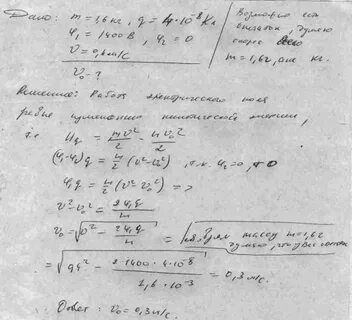 Дано: m = 1,6 кг, q = 4·10⁻⁸ Кл
φ₁ = 1400 В, φ₂ = 0
v = 0,6 м/с
v₀ - ?
Возможно
опечатка, думаю
скорее всего
m = 1,6г, а не кг.
Решение: Работа электрического поля
равна изменению кинетической энергии,
т.е. Uq = mv²/2 - mv₀²/2
(φ₁-φ₂)q = m/2 (v²-v₀²), т.к. φ₂=0, то
φ₁q = m/2 (v²-v₀²) =>
v²-v₀² = 2φ₁q/m
v₀ = √(v² - 2φ₁q/m) = массу m=1,6г
= √(0,6² - 2·1400·4·10⁻⁸/1,6·10⁻³) = 0,3 м/с.
Ответ: v₀ = 0,3 м/с.